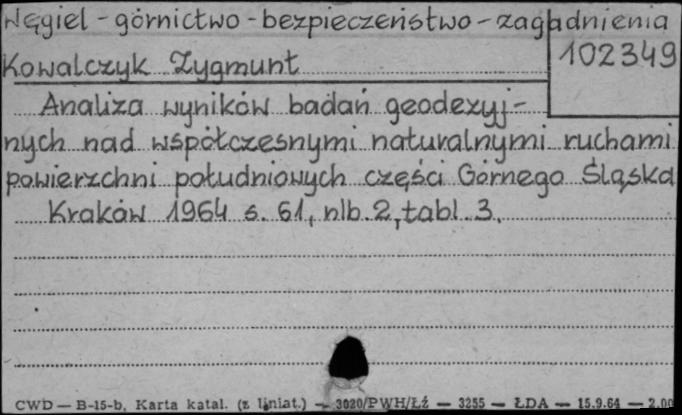 Węgiel - górnictwo - bezpieczeństwo - zagadnienia
102349
Kowalczyk Zygmunt
Analiza wyników badań geodezyj-
nych nad współczesnymi naturalnymi ruchami
powierzchni południowych części Górnego Śląska
Kraków 1964 s. 61, nlb. 2, tabl. 3.
CWD — B-15-b, Karta katal. (z liniat.) — 3020/PWH/Łź — 3255 — ŁDA — 15.9.64 — 2.00